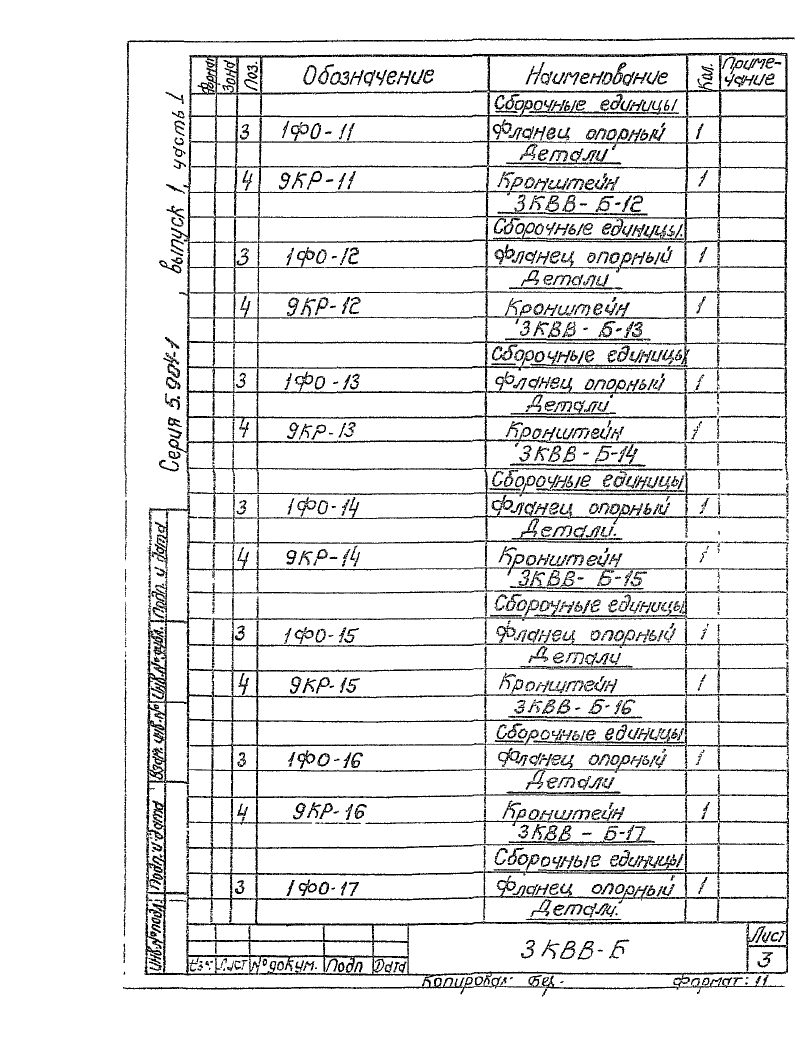 Серия 5.904-1, выпуск 1, часть I
Формат Зона Поз. Обозначение Наименование Кол. Приме-
чание
Сборочные единицы
3 1ФО-11 Фланец опорный 1
Детали
4 9КР-11 Кронштейн 1
3КВВ-Б-12
Сборочные единицы
3 1ФО-12 Фланец опорный 1
Детали
4 9КР-12 Кронштейн 1
3КВВ-Б-13
Сборочные единицы
3 1ФО-13 Фланец опорный 1
Детали
4 9КР-13 Кронштейн 1
3КВВ-Б-14
Сборочные единицы
3 1ФО-14 Фланец опорный 1
Детали.
4 9КР-14 Кронштейн 1
3КВВ-Б-15
Сборочные единицы
3 1ФО-15 Фланец опорный 1
Детали
4 9КР-15 Кронштейн 1
3КВВ-Б-16
Сборочные единицы
3 1ФО-16 Фланец опорный 1
Детали
4 9КР-16 Кронштейн 1
3КВВ-Б-17
Сборочные единицы
3 1ФО-17 Фланец опорный 1
Детали.
Инв.№подл. Подп. и дата Взам. инв.№ Инв.№дубл. Подп. и дата
Изм. Лист №докум. Подп Дата
3КВВ-Б
Лист
3
Копировал: Формат: 11